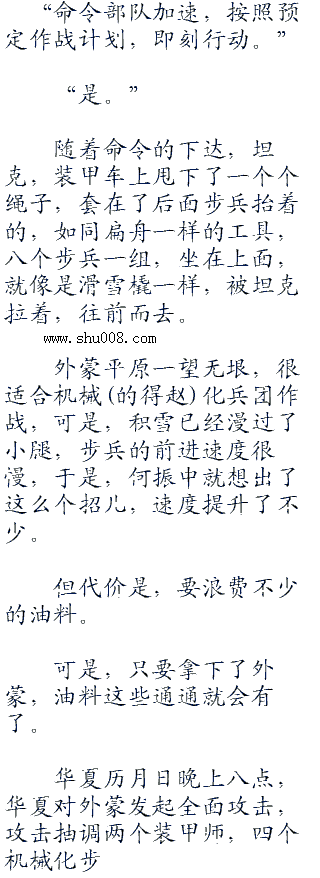 “命令部队加速，按照预
定作战计划，即刻行动。”
“是。”
随着命令的下达，坦
克，装甲车上甩下了一个个
绳子，套在了后面步兵抬着
的，如同扁舟一样的工具，
八个步兵一组，坐在上面，
就像是滑雪橇一样，被坦克
拉着，往前而去。
www.shu008.com
外蒙平原一望无垠，很
适合机械(的得赵)化兵团作
战，可是，积雪已经漫过了
小腿，步兵的前进速度很
慢，于是，何振中就想出了
这么个招儿，速度提升了不
少。
但代价是，要浪费不少
的油料。
可是，只要拿下了外
蒙，油料这些通通就会有
了。
华夏历月日晚上八点，
华夏对外蒙发起全面攻击，
攻击抽调两个装甲师，四个
机械化步